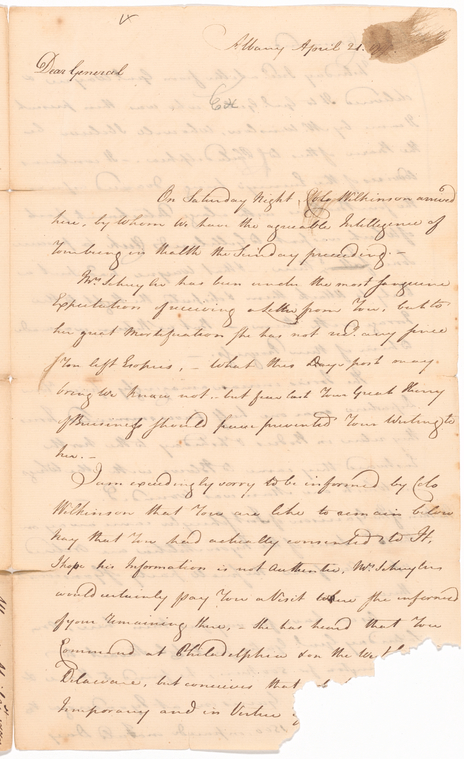 Albany April 21.
Dear General
On Saturday Night, Colo Wilkinson arrived
here, by whom we have the agreeable Intelligence of
Your being in Health the Sunday preceeding. -
Mrs Schuyler has been under the most sanguine
Expectation of receiving a Letter from You, but to
her great Mortification she has not recd. any since
You left Esopus, - What this Days post may
bring We know not - but fear lest Your Great Hurry
of Buisiness should have prevented Your Writing to
her. -
I am exceedingly sorry to be informed by Colo
Wilkinson that You are like to remain below
Nay that You had actually consented to It,
I hope his Information is not Authentic, Mrs Schuyler
would certainly pay You a Visit where she informed
of your remaining there, - she has heard that You
Command at Philadelphia & on the
Delaware, but conceives that
temporary and in Vertue